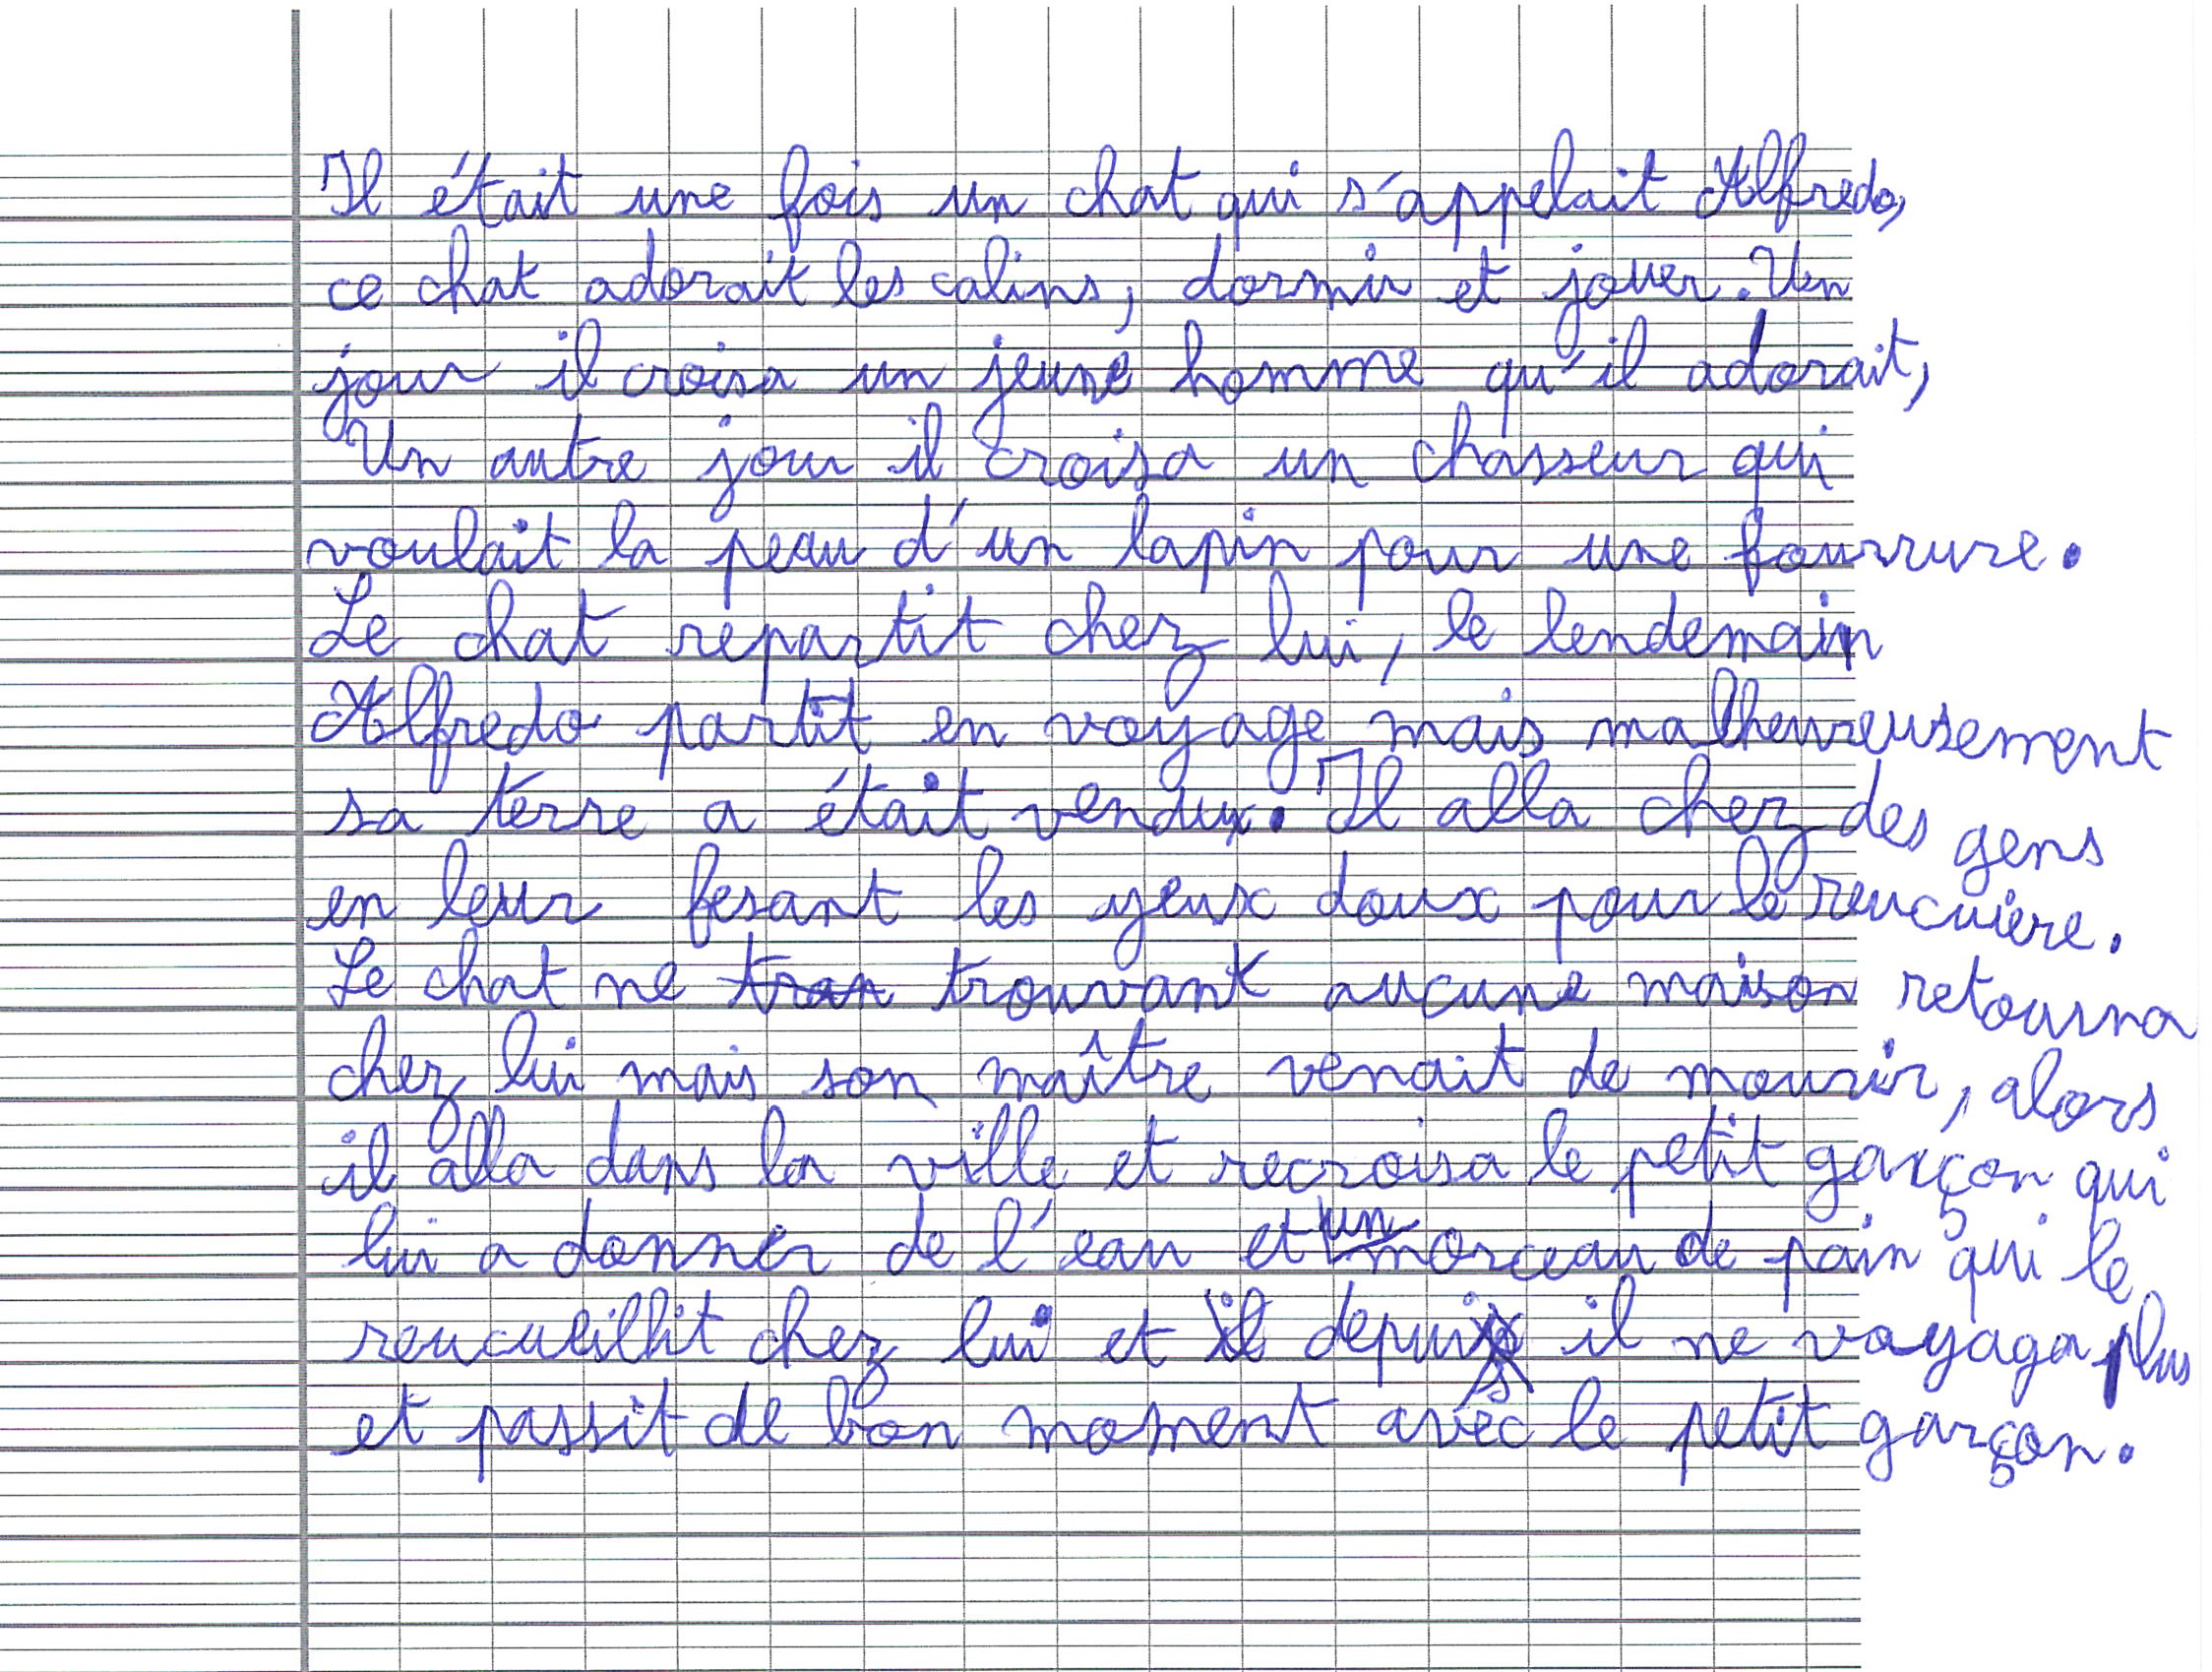 Il était une fois un chat qui s'appelait Alfredo,
ce chat adorait les calins, dormir et jouer. Un
jour il croisa un jeune homme qu'il adorait,
Un autre jour il croisa un chasseur qui
voulait la peau d'un lapin pour une fourrure.
Le chat repartit chez lui, le lendemain
Alfredo partit en voyage mais malheureusement
sa terre a était vendu. Il alla chez des gens
en leur fesant les yeux doux pour le reucuière.
Le chat ne trouvant aucune maison retourna
chez lui mais son maître venait de mourir, alors
il alla dans la ville et recroisa le petit garçon qui
lui a donner de l'eau et un morceau de pain qui le
reucueillit chez lui et depuis il ne voyaga plus
et passit de bon moment avec le petit garçon.